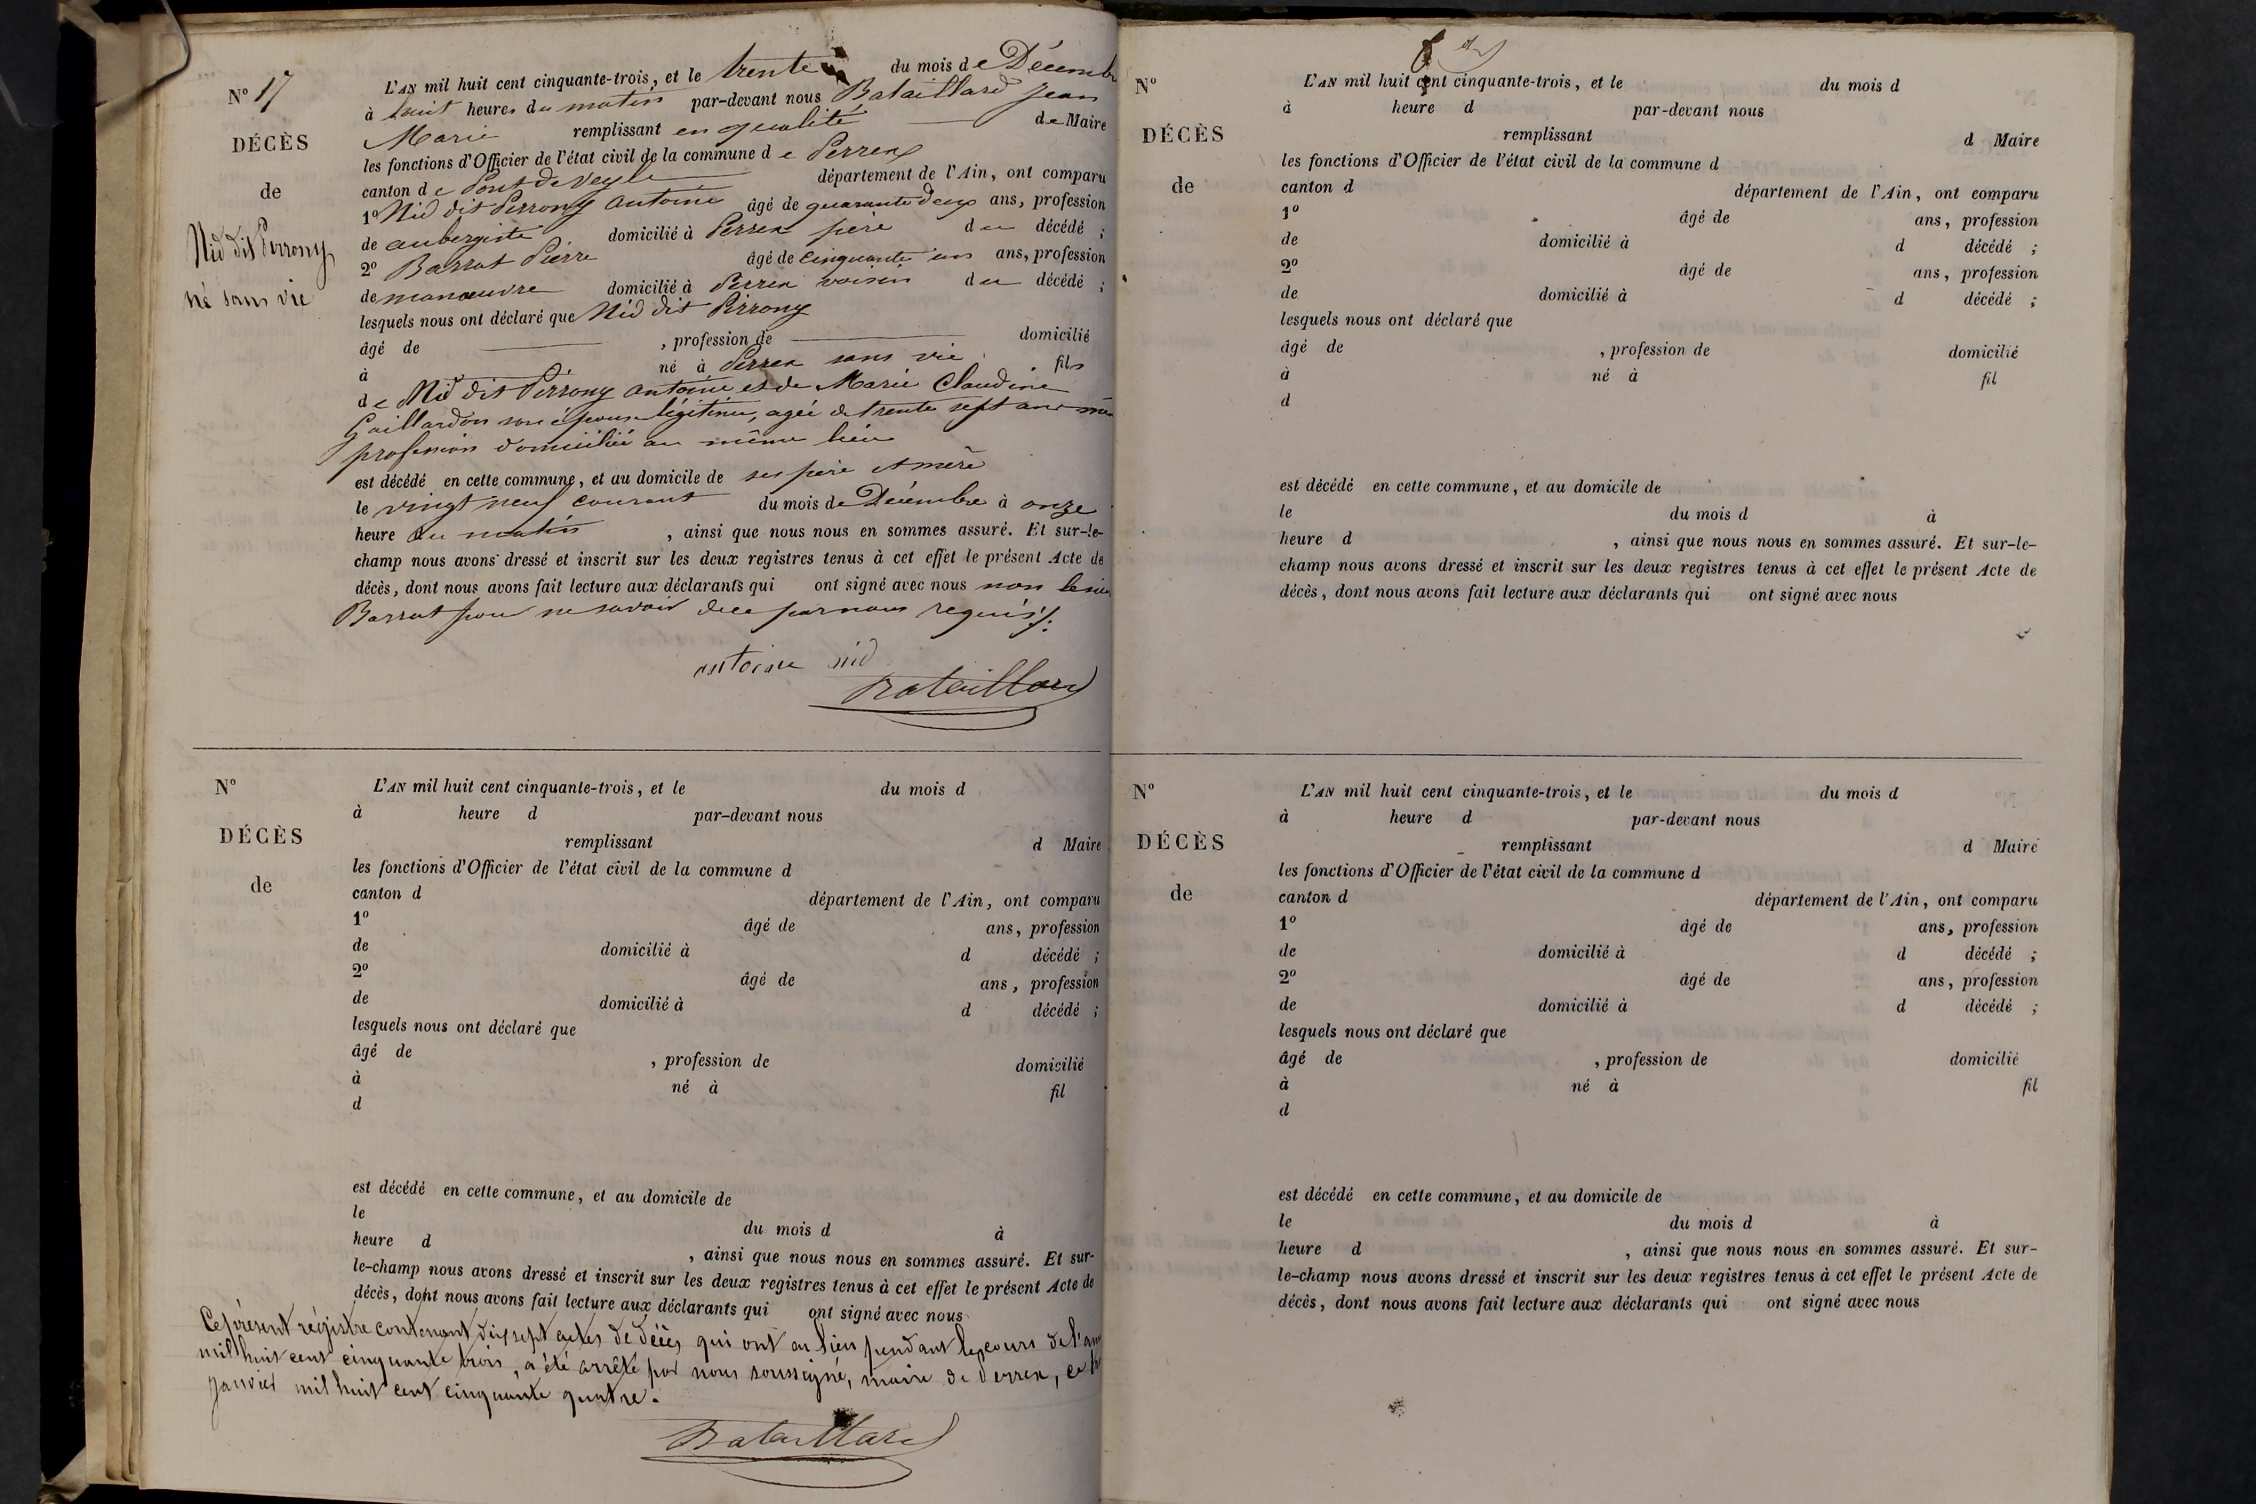 N° 17
DÉCÈS
de
Nid dit Perrony
né sans vie
L'AN mil huit cent cinquante-trois, et le trente du mois de Décembre
à huit heures du matin par-devant nous Bataillard Jean
Marie remplissant en qualité de Maire
les fonctions d'Officier de l'état civil de la commune de Perrex
canton de Pont de Veyle département de l'Ain, ont comparu
1° Nid dit Perrony Antoine âgé de quarante deux ans, profession
de aubergiste domicilié à Perrex père du décédé ;
2° Barrat Pierre âgé de cinquante ans, profession
de manœuvre domicilié à Perrex voisin du décédé ;
lesquels nous ont déclaré que Nid dit Perrony
âgé de , profession de domicilié
à né à Perrex sans vie fils
de Nid dit Perrony Antoine et de Marie Claudine
Gaillardon son épouse légitime, agée de trente sept ans
profession domiciliée au même lieu
est décédé en cette commune, et au domicile de ses père et mère
le vingt neuf courant du mois de Décembre à onze
heure du matin , ainsi que nous nous en sommes assuré. Et sur-le-
champ nous avons dressé et inscrit sur les deux registres tenus à cet effet le présent Acte de
décès, dont nous avons fait lecture aux déclarants qui ont signé avec nous non
Barrat pour ne savoir de ce par nous requis ./.
antoine nid
Bataillard
N°
DÉCÈS
de
L'AN mil huit cent cinquante-trois, et le du mois d
à heure d par-devant nous
remplissant d Maire
les fonctions d'Officier de l'état civil de la commune d
canton d département de l'Ain, ont comparu
1° âgé de ans, profession
de domicilié à d décédé ;
2° âgé de ans, profession
de domicilié à d décédé ;
lesquels nous ont déclaré que
âgé de , profession de domicilié
à né à fil
d
est décédé en cette commune, et au domicile de
le du mois d à
heure d , ainsi que nous nous en sommes assuré. Et sur-
le-champ nous avons dressé et inscrit sur les deux registres tenus à cet effet le présent Acte de
décès, dont nous avons fait lecture aux déclarants qui ont signé avec nous
Ce présent régistre contenant dix sept actes de décès qui ont eu lieu pendant le cours de l'an
mil huit cent cinquante trois, a été arrêté par nous soussigné, maire de Perrex, ce
Janvier mil huit cent cinquante quatre.
Bataillard
N°
DÉCÈS
de
L'AN mil huit cent cinquante-trois, et le du mois d
à heure d par-devant nous
remplissant d Maire
les fonctions d'Officier de l'état civil de la commune d
canton d département de l'Ain, ont comparu
1° âgé de ans, profession
de domicilié à d décédé ;
2° âgé de ans, profession
de domicilié à d décédé ;
lesquels nous ont déclaré que
âgé de , profession de domicilié
à né à fil
d
est décédé en cette commune, et au domicile de
le du mois d à
heure d , ainsi que nous nous en sommes assuré. Et sur-le-
champ nous avons dressé et inscrit sur les deux registres tenus à cet effet le présent Acte de
décès, dont nous avons fait lecture aux déclarants qui ont signé avec nous
N°
DÉCÈS
de
L'AN mil huit cent cinquante-trois, et le du mois d
à heure d par-devant nous
remplissant d Maire
les fonctions d'Officier de l'état civil de la commune d
canton d département de l'Ain, ont comparu
1° âgé de ans, profession
de domicilié à d décédé ;
2° âgé de ans, profession
de domicilié à d décédé ;
lesquels nous ont déclaré que
âgé de , profession de domicilié
à né à fil
d
est décédé en cette commune, et au domicile de
le du mois d à
heure d , ainsi que nous nous en sommes assuré. Et sur-
le-champ nous avons dressé et inscrit sur les deux registres tenus à cet effet le présent Acte de
décès, dont nous avons fait lecture aux déclarants qui ont signé avec nous